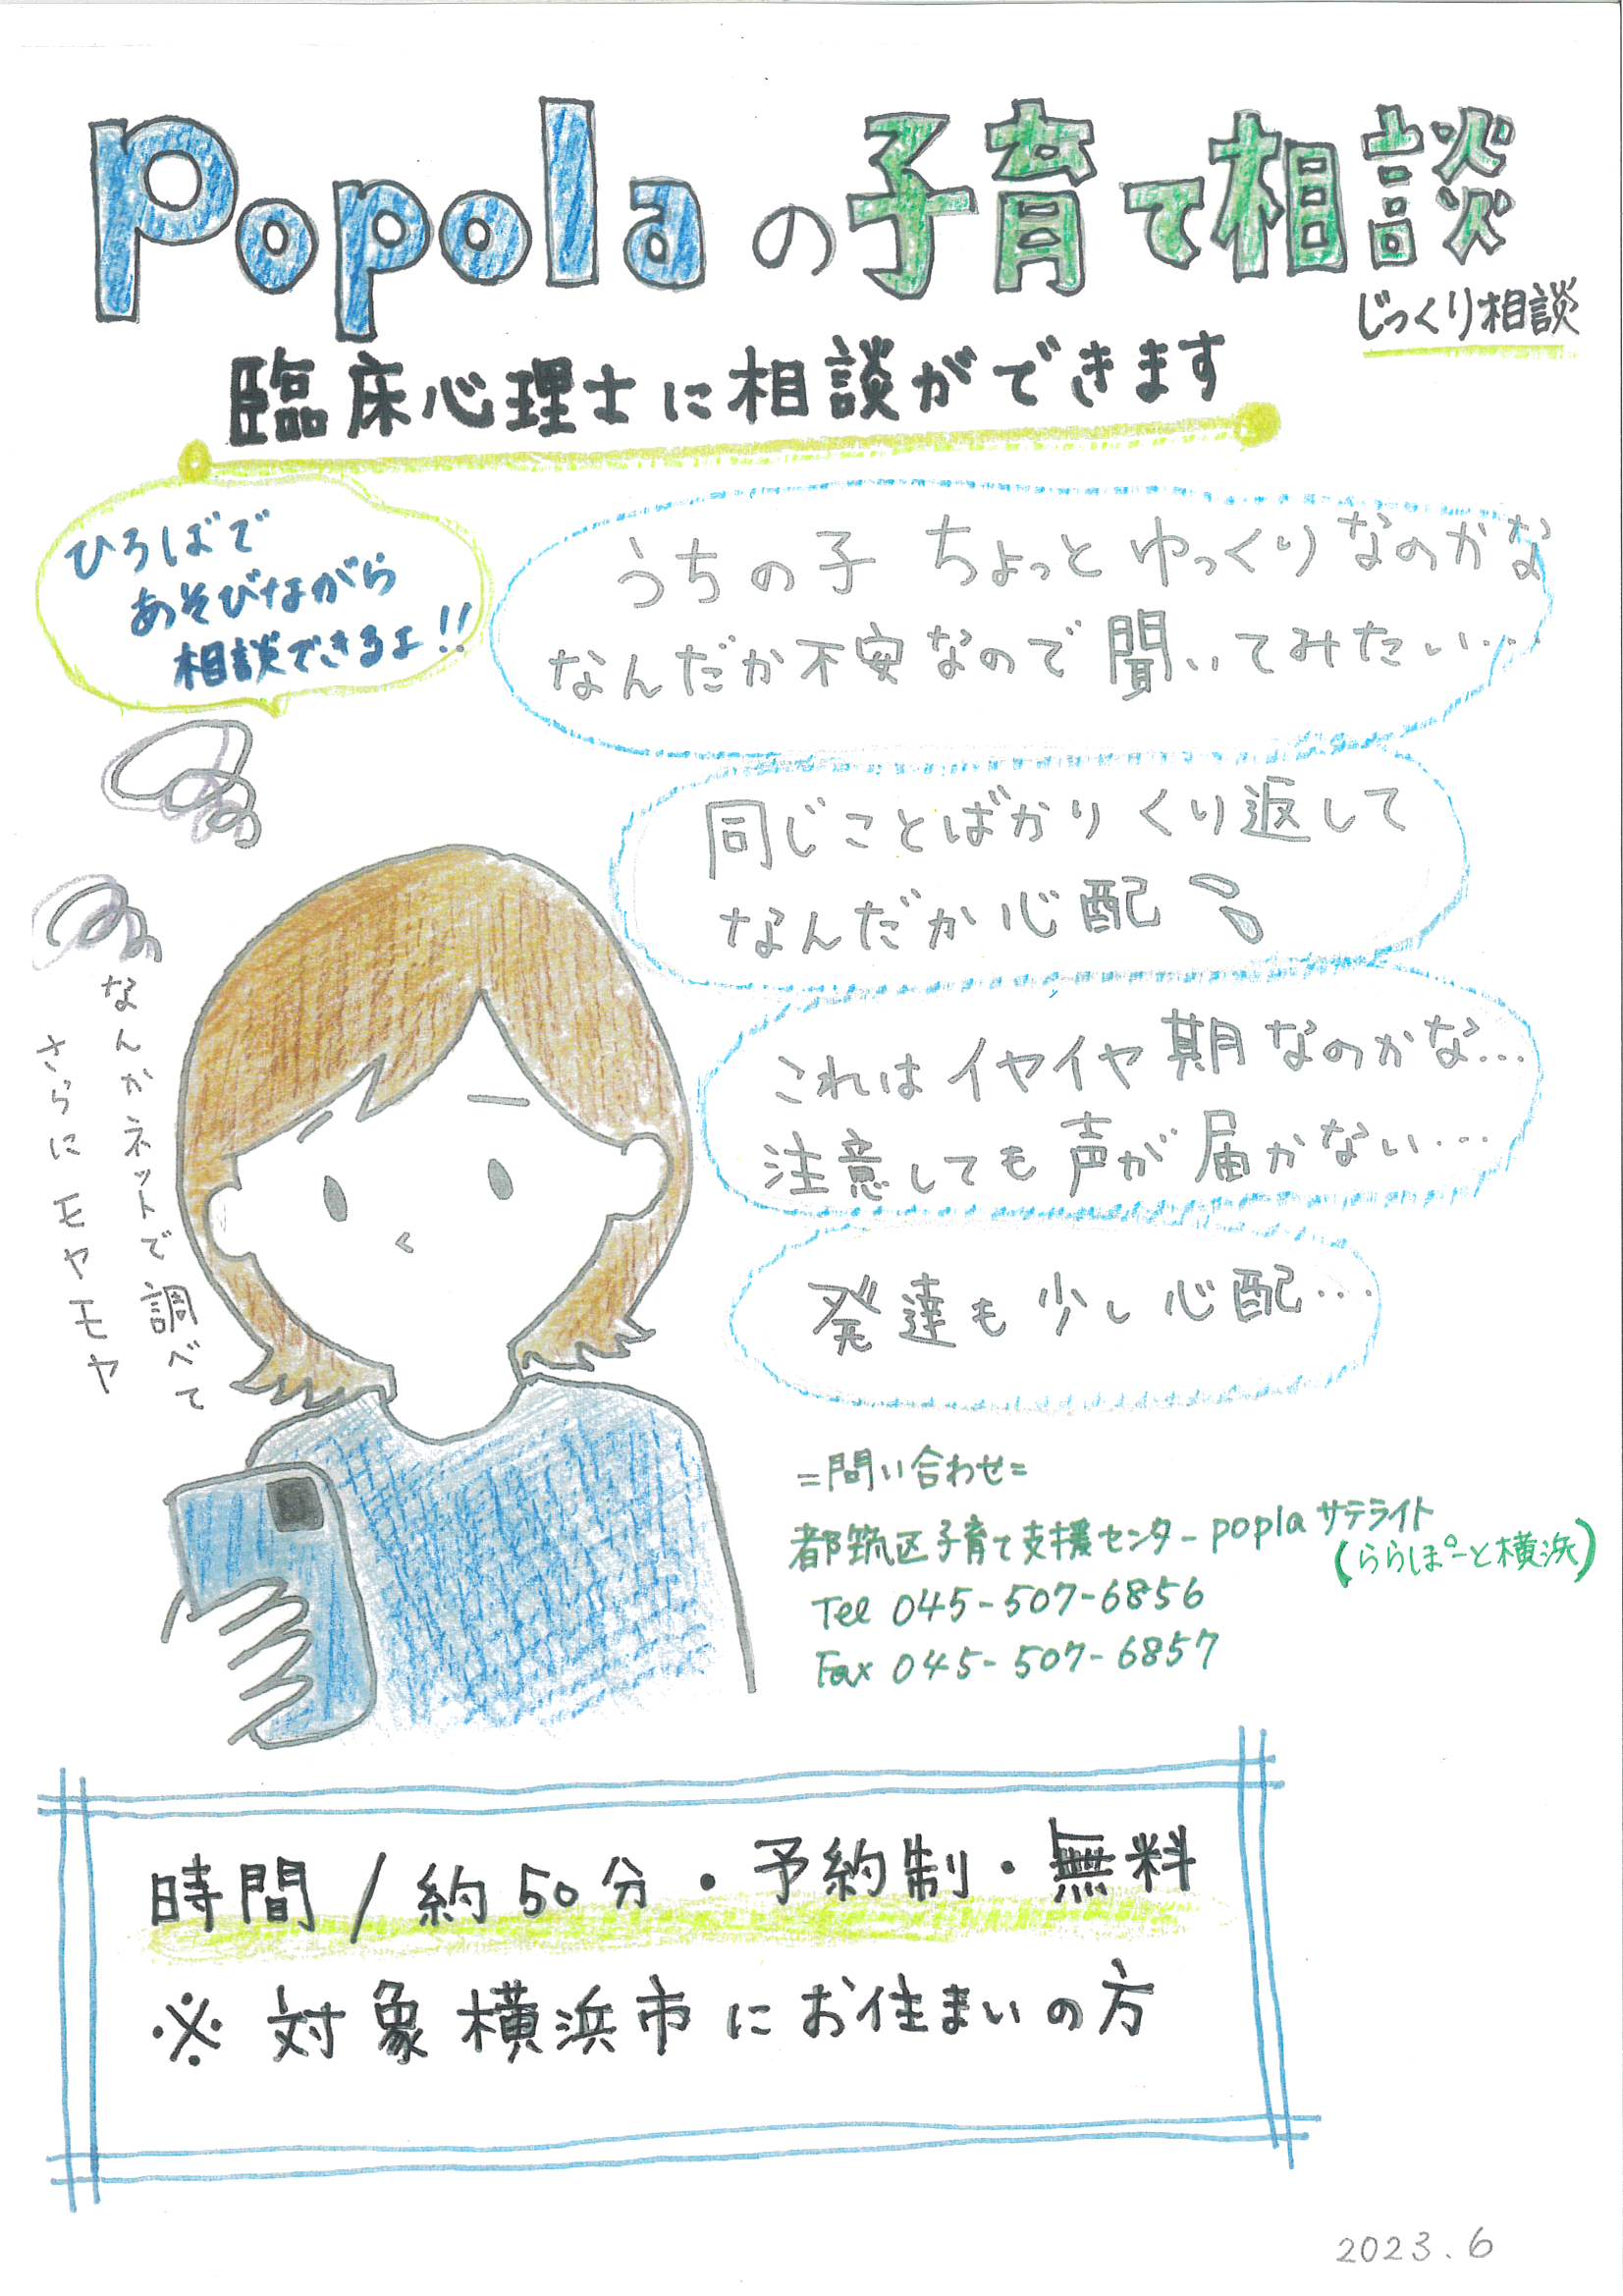 Popolaの子育て相談
じっくり相談
臨床心理士に相談ができます
ひろばで
あそびながら
相談できるよ!!
うちの子 ちょっとゆっくりなのかな
なんだか不安なので聞いてみたい…
同じことばかりくり返して
なんだか心配
これはイヤイヤ期なのかな…
注意しても声が届かない…
発達も少し心配…
なんかネットで調べて
さらにモヤモヤ
=問い合わせ=
都筑区子育て支援センターpoplaサテライト
(ららぽーと横浜)
Tel 045-507-6856
Fax 045-507-6857
時間/約50分・予約制・無料
※対象横浜市にお住まいの方
2023.6